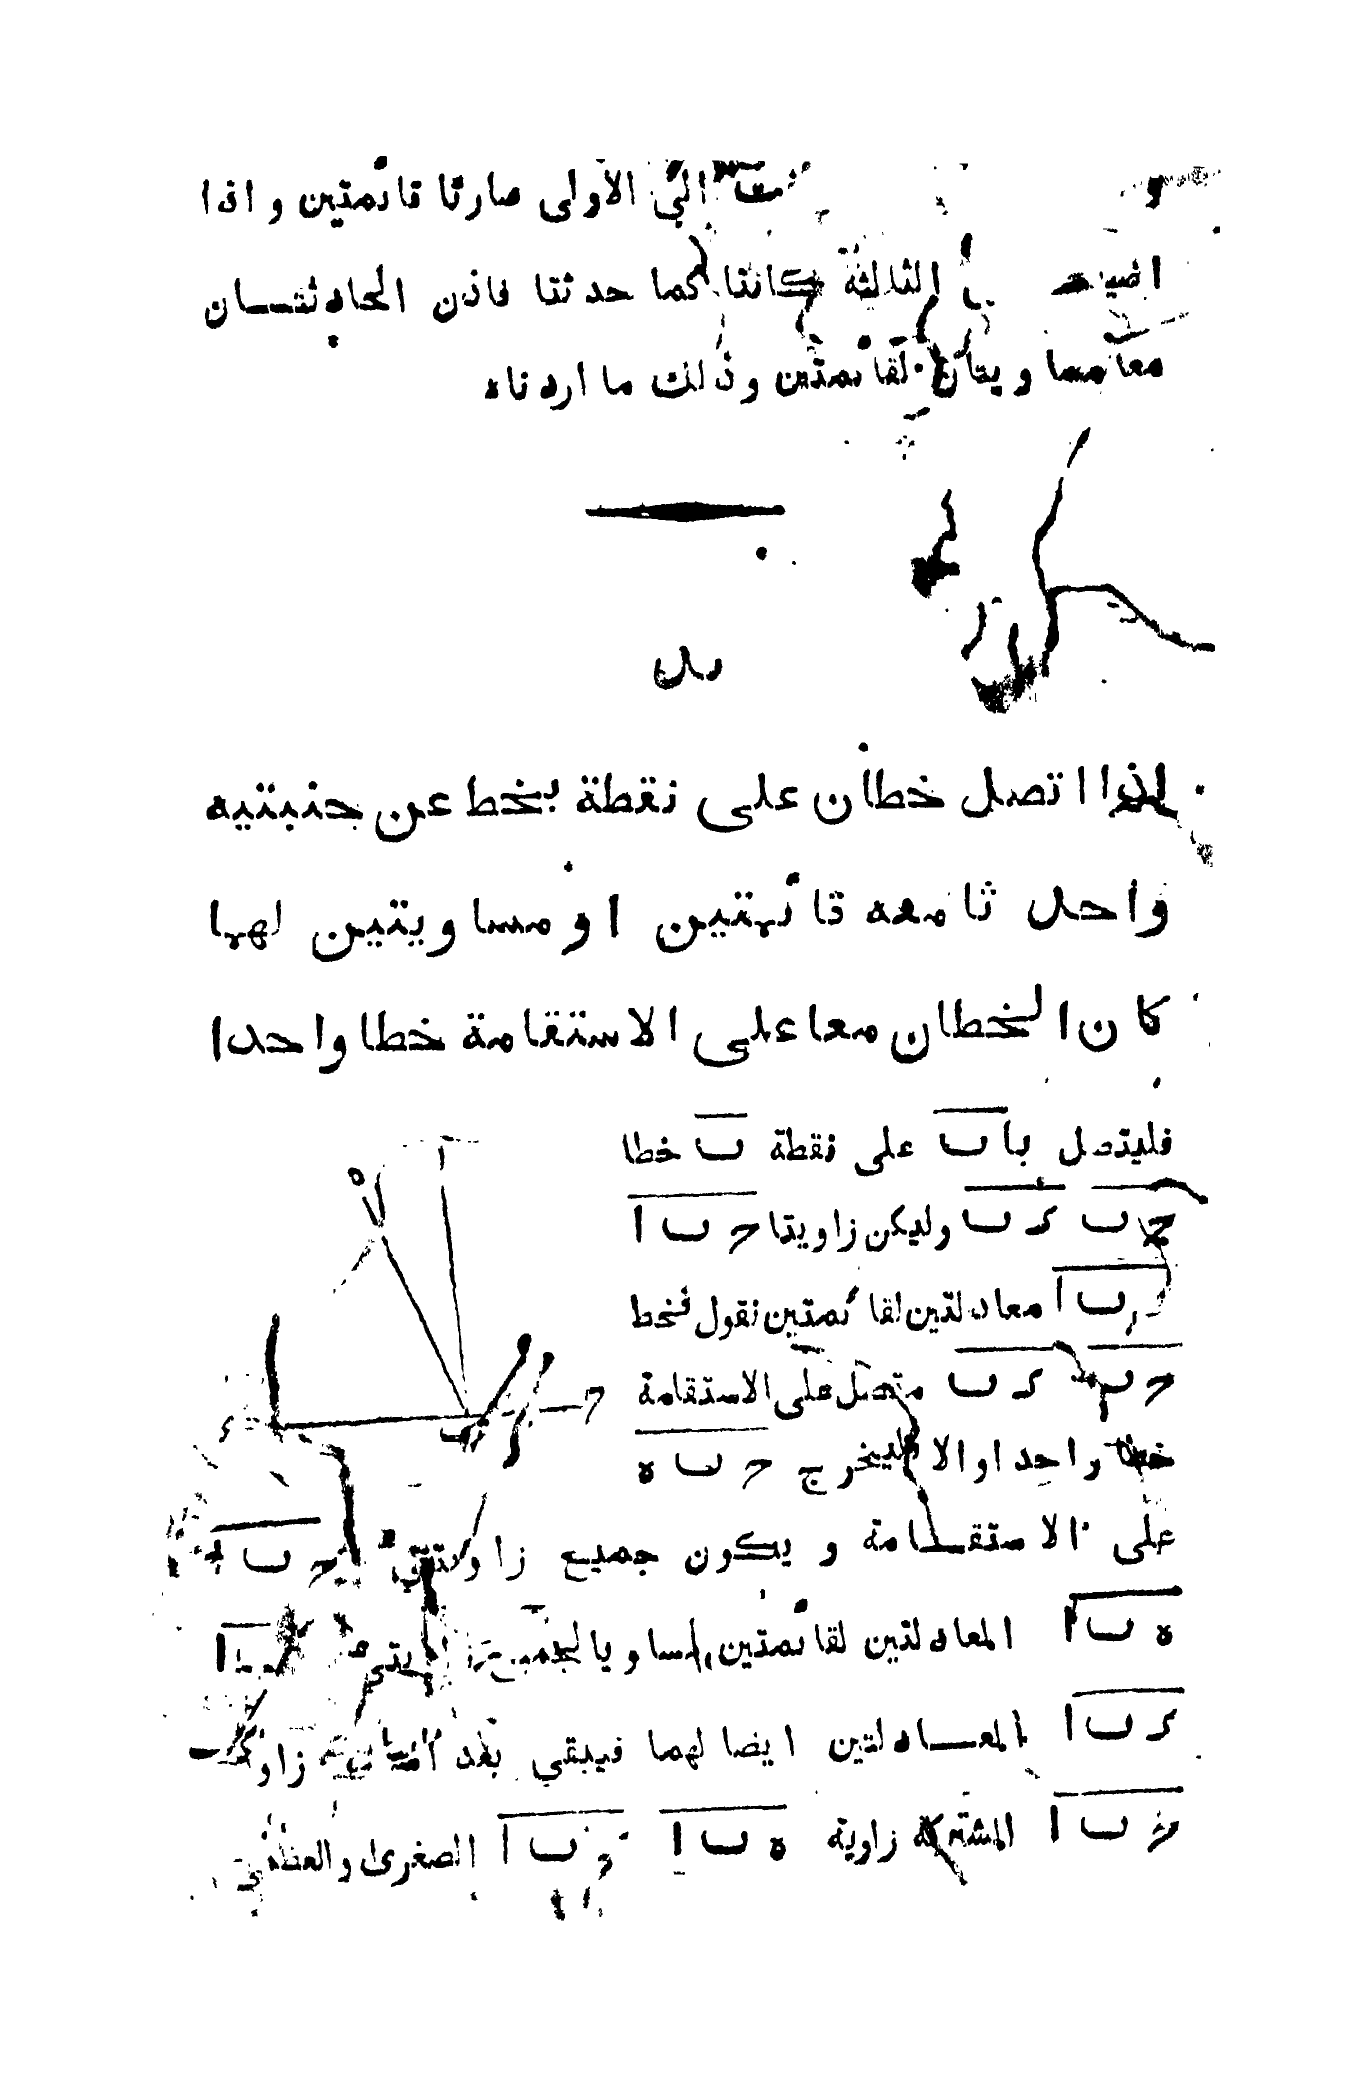 الى الاولى صارتا قائمتين واذا
الثالثة كانتا كما حدثتا فاذن الحادثتان
معا لقائمتين وذلك ما اردناه
يد
اذا اتصل خطان على نقطة بخط عن جنبتيه
واحدثا معه قائمتين او مساويتين لهما
كان الخطان معا على الاستقامة خطا واحدا
فليتصل باب على نقطة ب خطا
حب دب وليكن زاويتا حبا
دبا معادلتين لقائمتين نقول فخط
حب دب متصل على الاستقامة
خطا واحدا والا فليخرج حبه
على الاستقامة ويكون جميع زاويتي حبا
هبا المعادلتين لقائمتين مساويا لجميع زاويتي
دبا المعادلتين ايضا لهما فيبقى بعد زاوية
حبا المشتركة زاوية هبا دبا الصغرى والعظمى
ه
ا
ح
د
ب